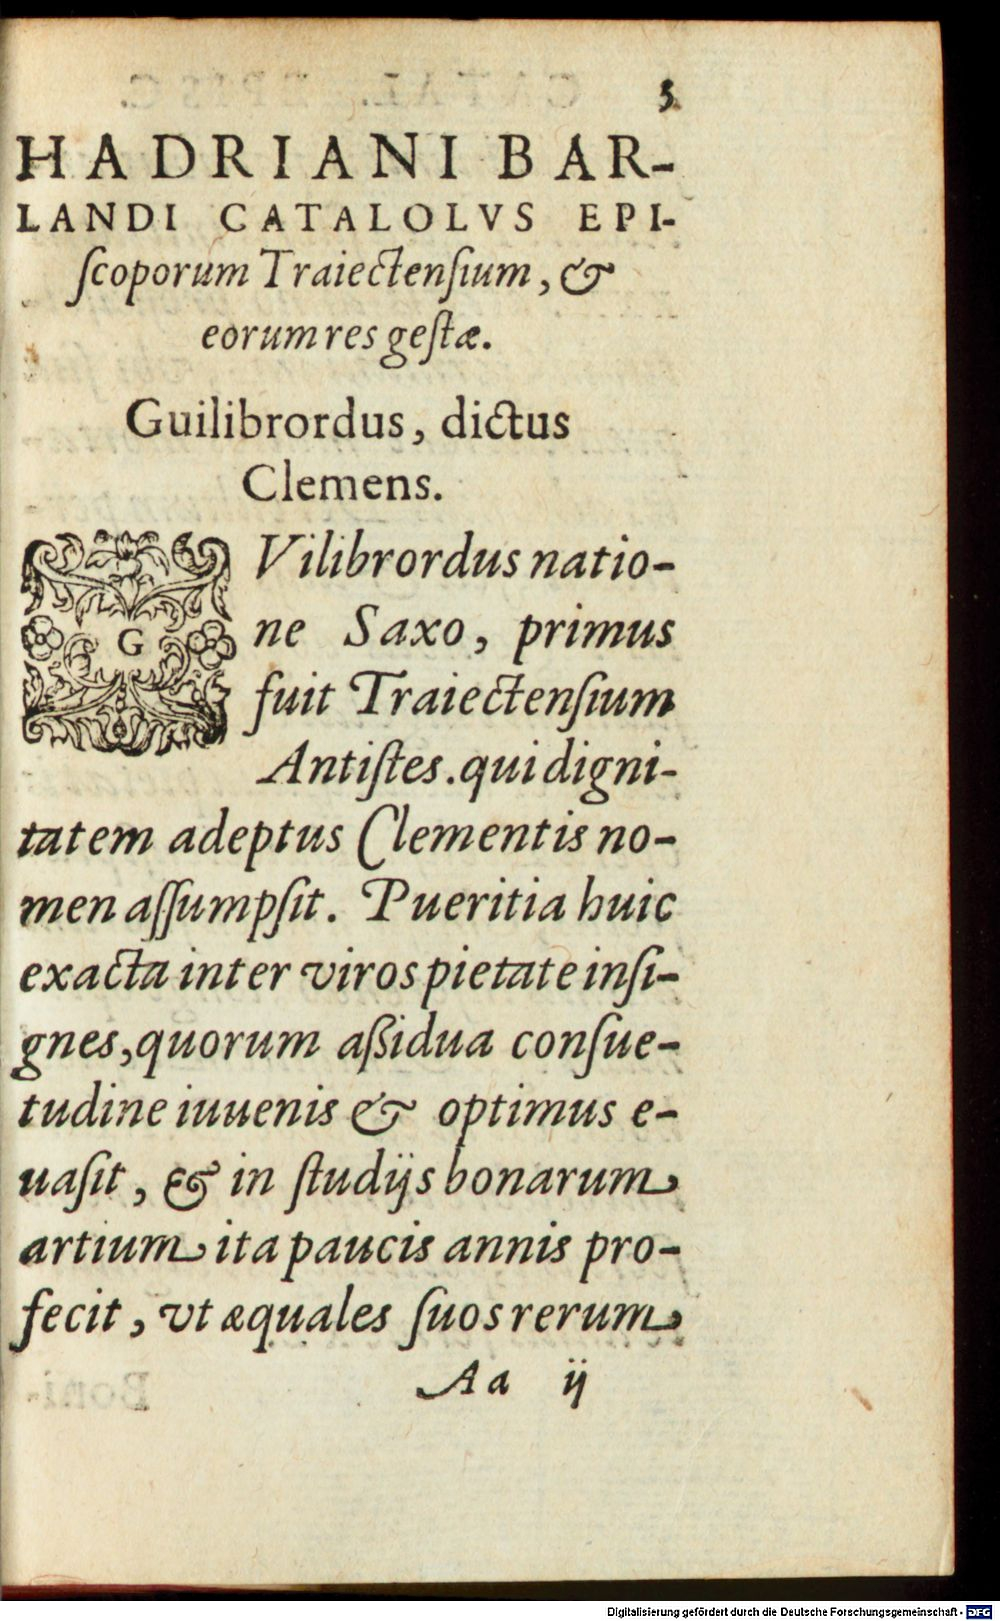 3
HADRIANI BAR-
LANDI CATALOLVS EPI-
ſcoporum Traiectenſium, &
eorum res geſtæ.
Guilibrordus, dictus
Clemens.
GVilibrordus natio-
ne Saxo, primus
fuit Traiectenſium
Antiſtes. qui digni-
tatem adeptus Clementis no-
men aſſumpſit. Pueritia huic
exacta inter viros pietate inſi-
gnes, quorum aßidua conſue-
tudine iuuenis & optimus e-
uaſit, & in ſtudijs bonarum
artium ita paucis annis pro-
fecit, vt æquales ſuos rerum
Aa ij
Digitalisierung gefördert durch die Deutsche Forschungsgemeinschaft - DFG